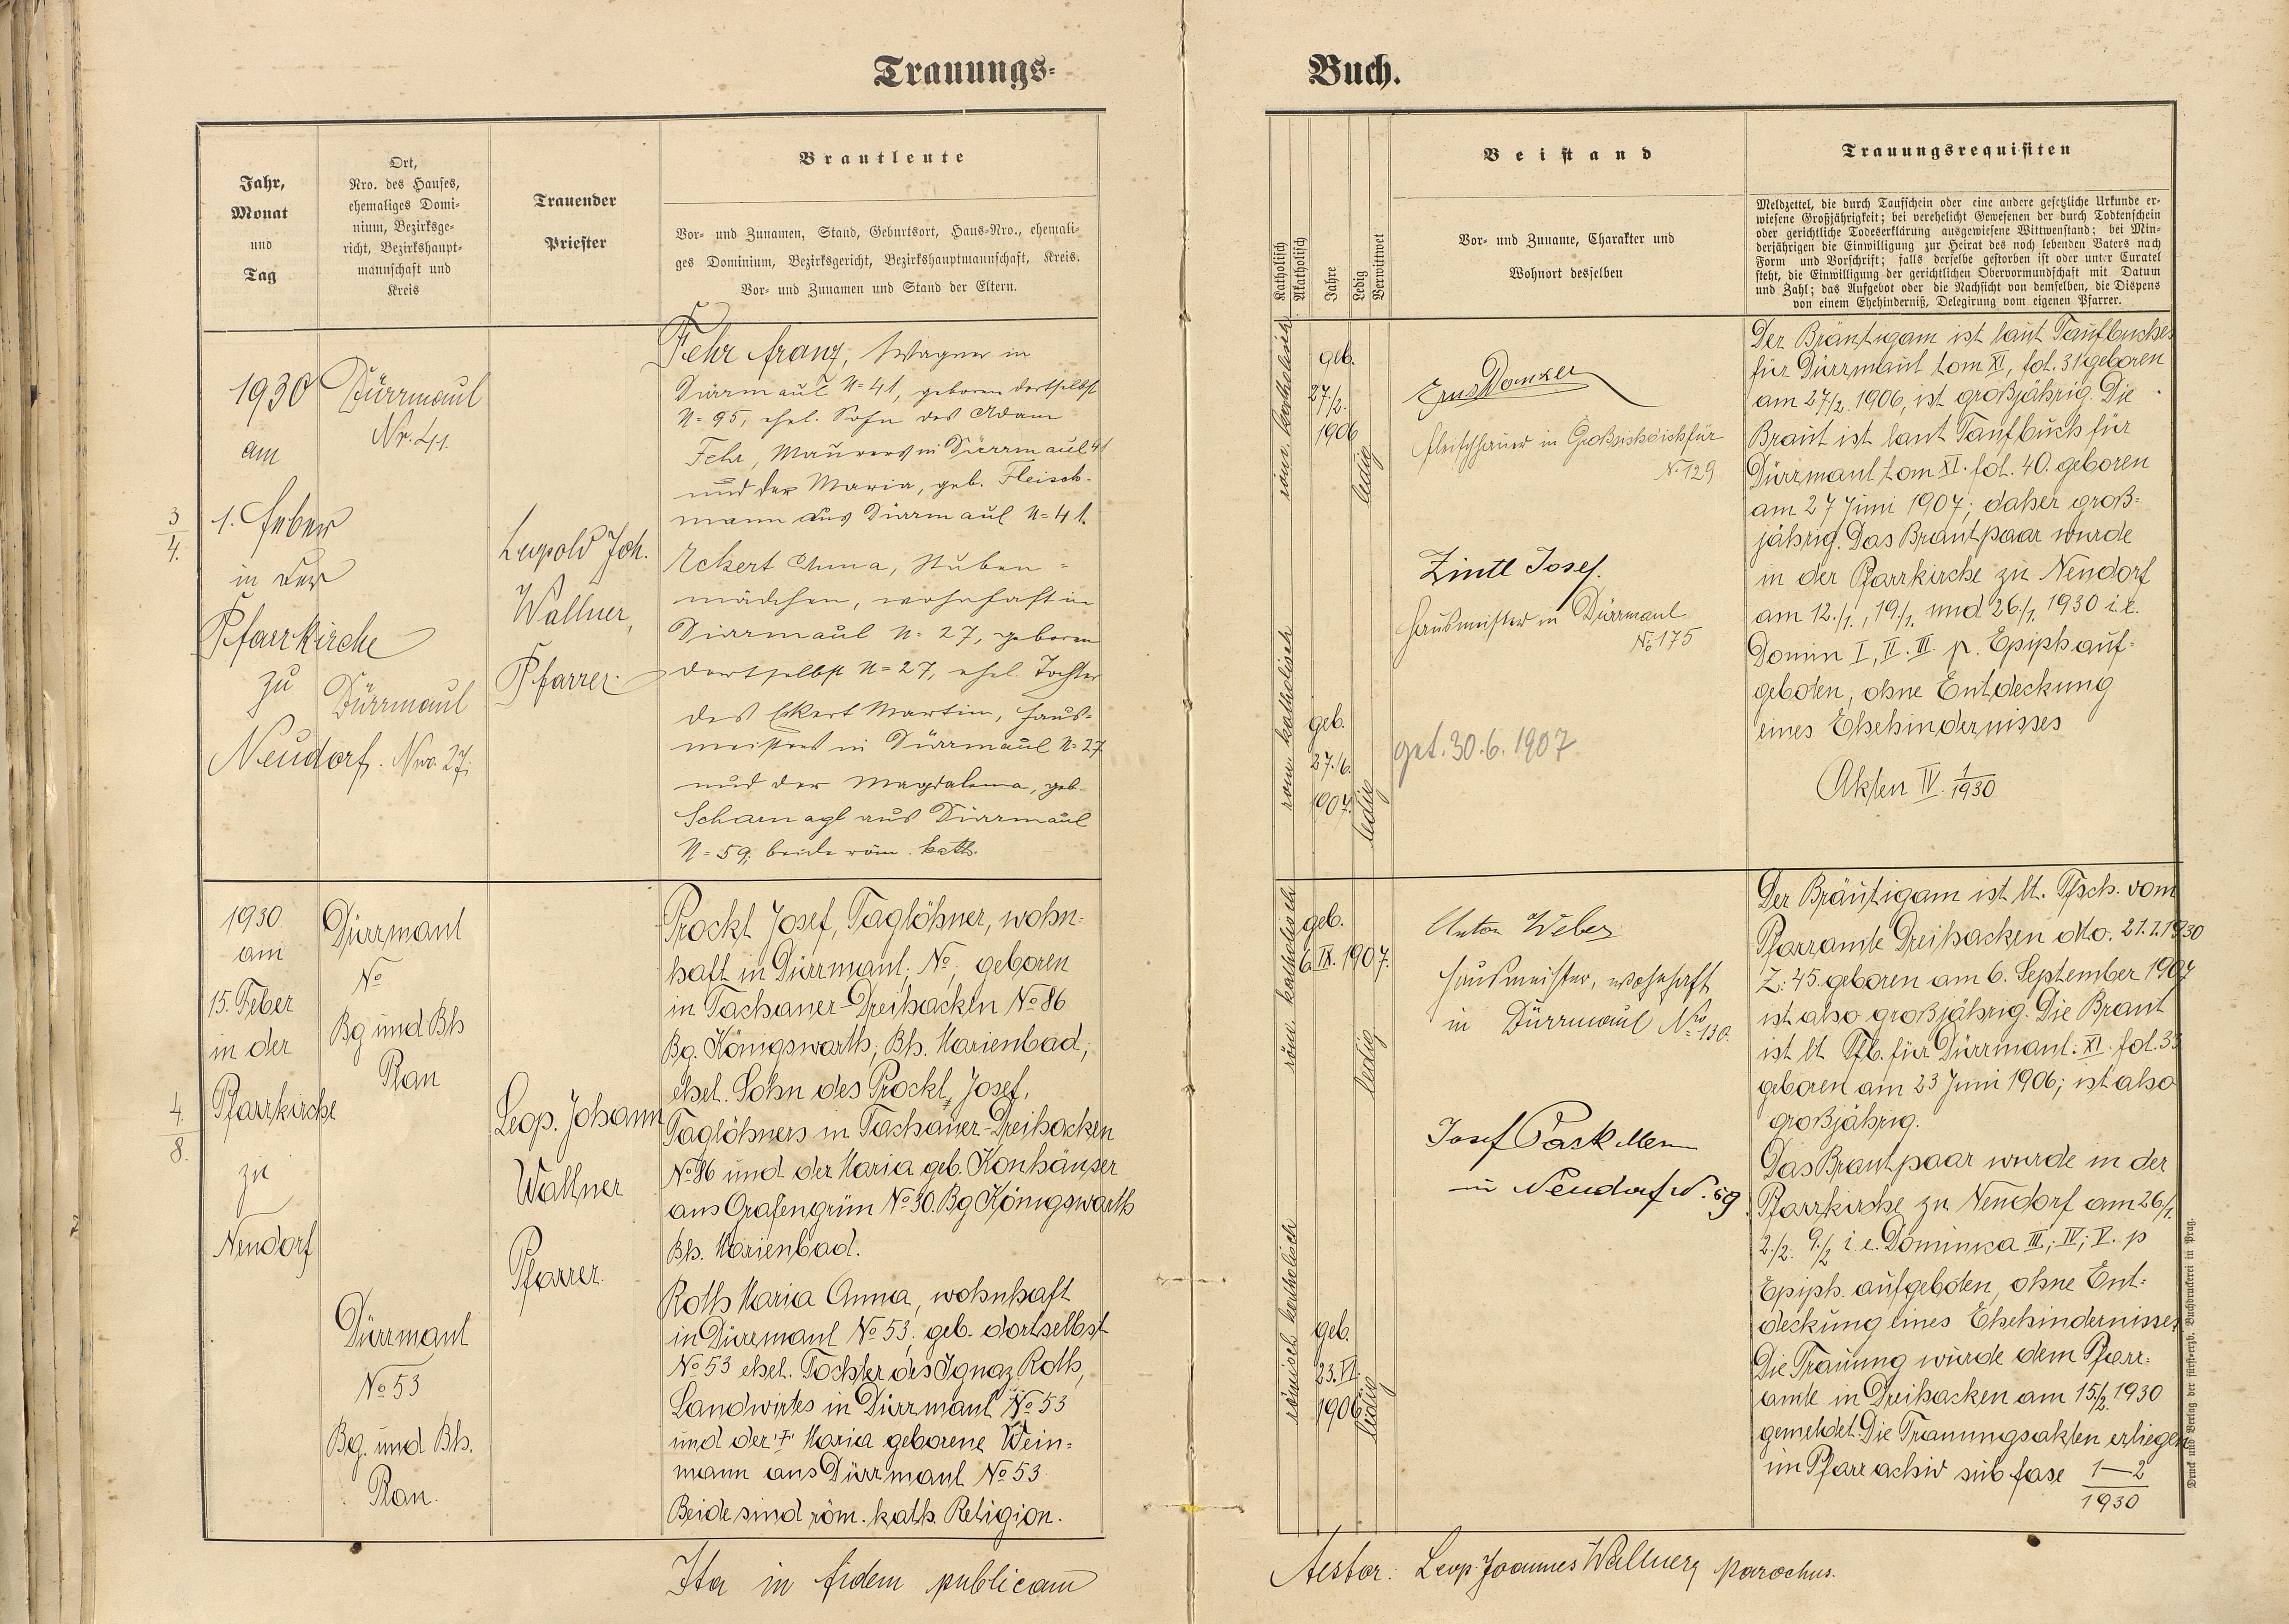 Trauungs-
Buch.
Jahr,
Monat
und
Tag
Ort,
Nro. des Hauses,
ehemaliges Domi-
nium, Bezirksge-
richt, Bezirkshaupt-
mannschaft und
Kreis
Trauender
Priester
Brautleute
Vor- und Zunamen, Stand, Geburtsort, Haus-Nro., ehemali-
ges Dominium, Bezirksgericht, Bezirkshauptmannschaft, Kreis.
Vor- und Zunamen und Stand der Eltern.
Katholisch
Akatholisch
Jahre
Ledig
Verwittwet
Beistand
Vor- und Zuname, Charakter und
Wohnort desselben
Trauungsrequisiten
Meldzettel, die durch Taufschein oder eine andere gesetzliche Urkunde er-
wiesene Großjährigkeit; bei verehelicht Gewesenen der durch Todtenschein
oder gerichtliche Todeserklärung ausgewiesene Wittwenstand; bei Min-
derjährigen die Einwilligung zur Heirat des noch lebenden Vaters nach
Form und Vorschrift; falls derselbe gestorben ist oder unter Curatel
steht, die Einwilligung der gerichtlichen Obervormundschaft mit Datum
und Zahl; das Aufgebot oder die Nachsicht von demselben, die Dispens
von einem Ehehinderniß, Delegirung vom eigenen Pfarrer.
3
4.
1930
am
1. Feber
in der
Pfarrkirche
zu
Neudorf.
Dürrmaul
Nr. 41.
Dürrmaul
Nro. 27.
Leopold Joh.
Wallner,
Pfarrer.
Fehr Franz, Wagner in
Dürrmaul N= 41, geboren dortselbst
N= 95, ehel. Sohn des Adam
Fehr, Maurers in Dürrmaul 41
und der Maria, geb. Fleisch-
mann aus Dürrmaul N= 41.
Eckert Anna, Stuben-
mädchen, wohnhaft in
Dürrmaul N= 27, geboren
dortselbst N= 27, ehel. Tochter
des Eckert Martin, Haus-
meisters in Dürrmaul N= 27
und der Magdalena, geb.
Scharnagl aus Dürrmaul
N= 59; beide röm. kath.
röm. katholisch
geb.
27./2.
1906
ledig
röm. katholisch
geb.
27./6.
1907.
ledig
Fleischhauer in
No 129
Zintl Josef.
Hausmeister in Dürrmaul
No 175
get. 30.6.1907
Der Bräutigam ist laut Taufbuches
für Dürrmaul tom XI, fol. 31 geboren
am 27/2. 1906, ist großjährig. Die
Braut ist laut Taufbuch für
Dürrmaul tom XI. fol. 40. geboren
am 27 Juni 1907; daher groß-
jährig. Das Brautpaar wurde
in der Pfarrkirche zu Neudorf
am 12./1., 19./1. und 26./1. 1930 i.e.
Domin I, II. III. p. Epiph auf-
geboten, ohne Entdeckung
eines Ehehindernisses
Akten IV. 1/1930
4
8.
1930.
am
15. Feber
in der
Pfarrkirche
zu
Neudorf
Dürrmaul
No
Bg und Bh
Plan
Dürrmaul
No 53
Bg. und Bh.
Plan.
Leop. Johann
Wallner
Pfarrer.
Prockl Josef, Taglöhner, wohn-
haft in Dürrmaul; No, geboren
in Tachauer-Dreihacken No 86
Bg. Königswarth; Bh. Marienbad;
ehel. Sohn des Prockl, Josef,
Taglöhners in Tachauer-Dreihacken
No 86 und der Maria geb. Konhäuser
aus Grafengrün No 30. Bg Königswarth
Bh. Marienbad.
Roth Maria Anna, wohnhaft
in Dürrmaul No 53; geb. dortselbst
No 53 ehel. Tochter des Ignaz Roth,
Landwirtes in Dürrmaul No 53
und der † Maria geborene Wein-
mann aus Dürrmaul No 53.
Beide sind röm. kath. Religion.
röm. katholisch
geb.
6. IX. 1907.
ledig
römisch katholisch
geb.
23. VI.
1906
ledig
Anton Weber
Hausmeister, wohnhaft
in Dürrmaul Nro 130.
Josef
in Neudorf N. 59
Der Bräutigam ist lt. Tfsch. vom
Pfarramte Dreihacken dto. 21.1.1930
Z: 45. geboren am 6. September 1907
ist also großjährig. Die Braut
ist lt Tfb. für Dürrmaul: XI. fol. 33
geboren am 23 Juni 1906; ist also
großjährig.
Das Brautpaar wurde in der
Pfarrkirche zu Neudorf am 26/1.
2./2. 9./2 i.e. Dominica III; IV; V. p
Epiph. aufgeboten, ohne Ent-
deckung eines Ehehindernisses
Die Trauung wurde dem Pfarr-
amte in Dreihacken am 15/2. 1930
gemeldet. Die Trauungsakten erliegen
im Pfarrachiv sub fasc 1—2
1930
Ita in fidem publicam
Testor: Leop. Joannes Wallner, parochus.
Druck und Verlag der fürst-erzb. Buchdruckerei in Prag.